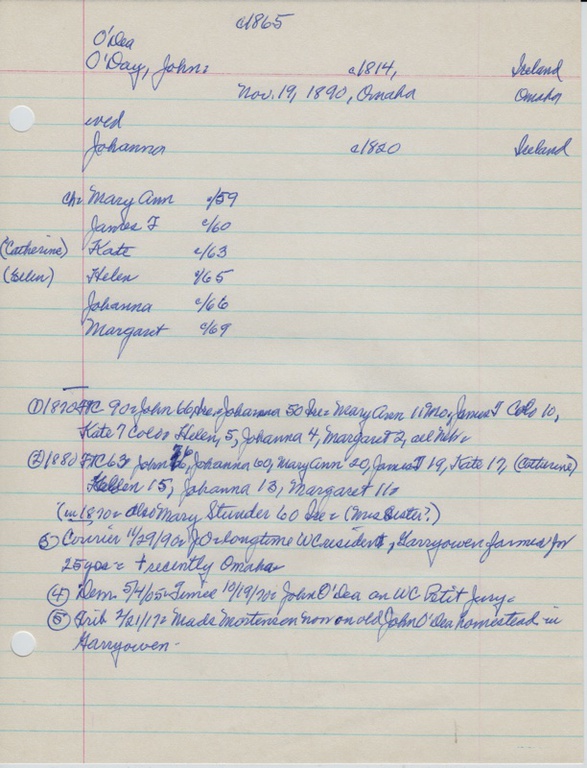 c1865
O'Dea
O'Day, John: c1814, Ireland
Nov. 19, 1890, Omaha Omaha
wed
Johanna c1820 Ireland
ch: Mary Ann c/59
James F c/60
(Catherine) Kate c/63
(Ellen) Helen c/65
Johanna c/66
Margaret c/69
① 1870 FTC 90= John 66, Ire= Johanna 50 Ire= Mary Ann 11 Mo= James T Colo 10,
Kate 7 Colo= Helen, 5, Johanna 4, Margaret 2, all Neb=
② 1880 FTC 63= John 76, Johanna 60, Mary Ann 20, James T 19, Kate 17, (Catherine)
Hellen 15, Johanna 13, Margaret 11=
(in 1870= also Mary Stunder 60 Ire= (Mrs. Sister?)
③ Courier 11/29/90= JO= longtime WC resident, Garryowen farmer for
25 yrs= + recently Omaha=
④ Dem. 5/4/05= Times 10/19/70= John O'Dea on WC Petit Jury=
⑤ Trib 2/21/17= Mads Mortensen now on old John O'Dea homestead in
Garryowen-